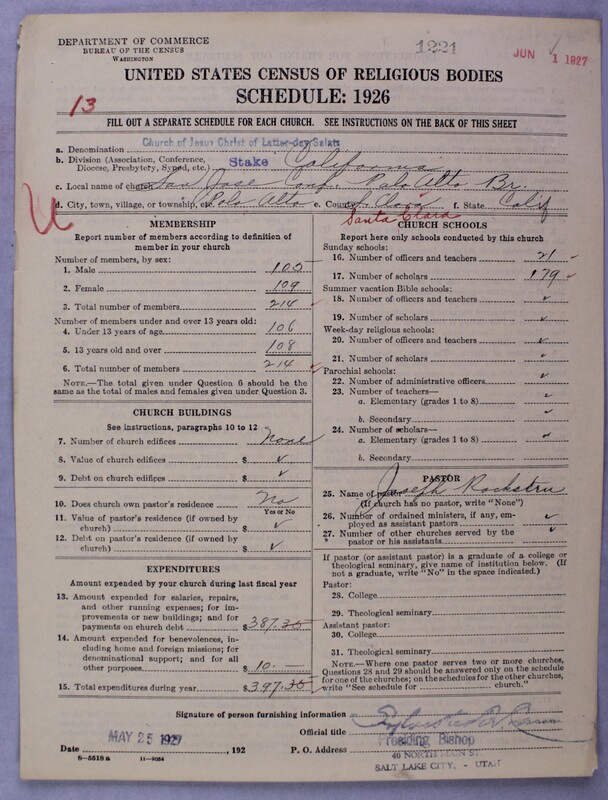 DEPARTMENT OF COMMERCE
BUREAU OF THE CENSUS
WASHINGTON
1221
JUN 1 1927
UNITED STATES CENSUS OF RELIGIOUS BODIES
SCHEDULE: 1926
13
FILL OUT A SEPARATE SCHEDULE FOR EACH CHURCH. SEE INSTRUCTIONS ON THE BACK OF THIS SHEET
a. Denomination Church of Jesus Christ of Latter-day Saints
b. Division (Association, Conference, Diocese, Presbytery, Synod, etc.) Stake California
c. Local name of church San Jose Conf. Palo Alto Br.
d. City, town, village, or township, etc. Palo Alto e. County S. Clara f. State Calif
Santa Clara
MEMBERSHIP
Report number of members according to definition of
member in your church
Number of members, by sex:
1. Male 105
2. Female 109
3. Total number of members 214
Number of members under and over 13 years old:
4. Under 13 years of age 106
5. 13 years old and over 108
6. Total number of members 214
NOTE.—The total given under Question 6 should be the
same as the total of males and females given under Question 3.
CHURCH BUILDINGS
See instructions, paragraphs 10 to 12
7. Number of church edifices None
8. Value of church edifices $ ✓
9. Debt on church edifices $ ✓
10. Does church own pastor's residence No
Yes or No
11. Value of pastor's residence (if owned by
church) $ ✓
12. Debt on pastor's residence (if owned by
church) $ ✓
EXPENDITURES
Amount expended by your church during last fiscal year
13. Amount expended for salaries, repairs,
and other running expenses; for im-
provements or new buildings; and for
payments on church debt $387.35
14. Amount expended for benevolences, in-
cluding home and foreign missions; for
denominational support; and for all
other purposes $10.—
15. Total expenditures during year $397.35
CHURCH SCHOOLS
Report here only schools conducted by this church
Sunday schools:
16. Number of officers and teachers 21
17. Number of scholars 179
Summer vacation Bible schools:
18. Number of officers and teachers ✓
19. Number of scholars ✓
Week-day religious schools:
20. Number of officers and teachers ✓
21. Number of scholars ✓
Parochial schools:
22. Number of administrative officers ✓
23. Number of teachers—
a. Elementary (grades 1 to 8) ✓
b. Secondary ✓
24. Number of scholars—
a. Elementary (grades 1 to 8) ✓
b. Secondary
PASTOR
25. Name of pastor Joseph
(If church has no pastor, write "None")
26. Number of ordained ministers, if any, em-
ployed as assistant pastors ✓
27. Number of other churches served by the
pastor or his assistants ✓
If pastor (or assistant pastor) is a graduate of a college or
theological seminary, give name of institution below. (If
not a graduate, write "No" in the space indicated.)
Pastor:
28. College
29. Theological seminary
Assistant pastor:
30. College
31. Theological seminary
NOTE.—Where one pastor serves two or more churches,
Questions 28 and 29 should be answered only on the schedule
for one of the churches; on the schedules for the other churches,
write "See schedule for church."
Signature of person furnishing information
Official title Presiding Bishop
Date MAY 25 1927, 192 P. O. Address 40 NORTH MAIN ST
SALT LAKE CITY, - UTAH
8—5518 a 11—9054